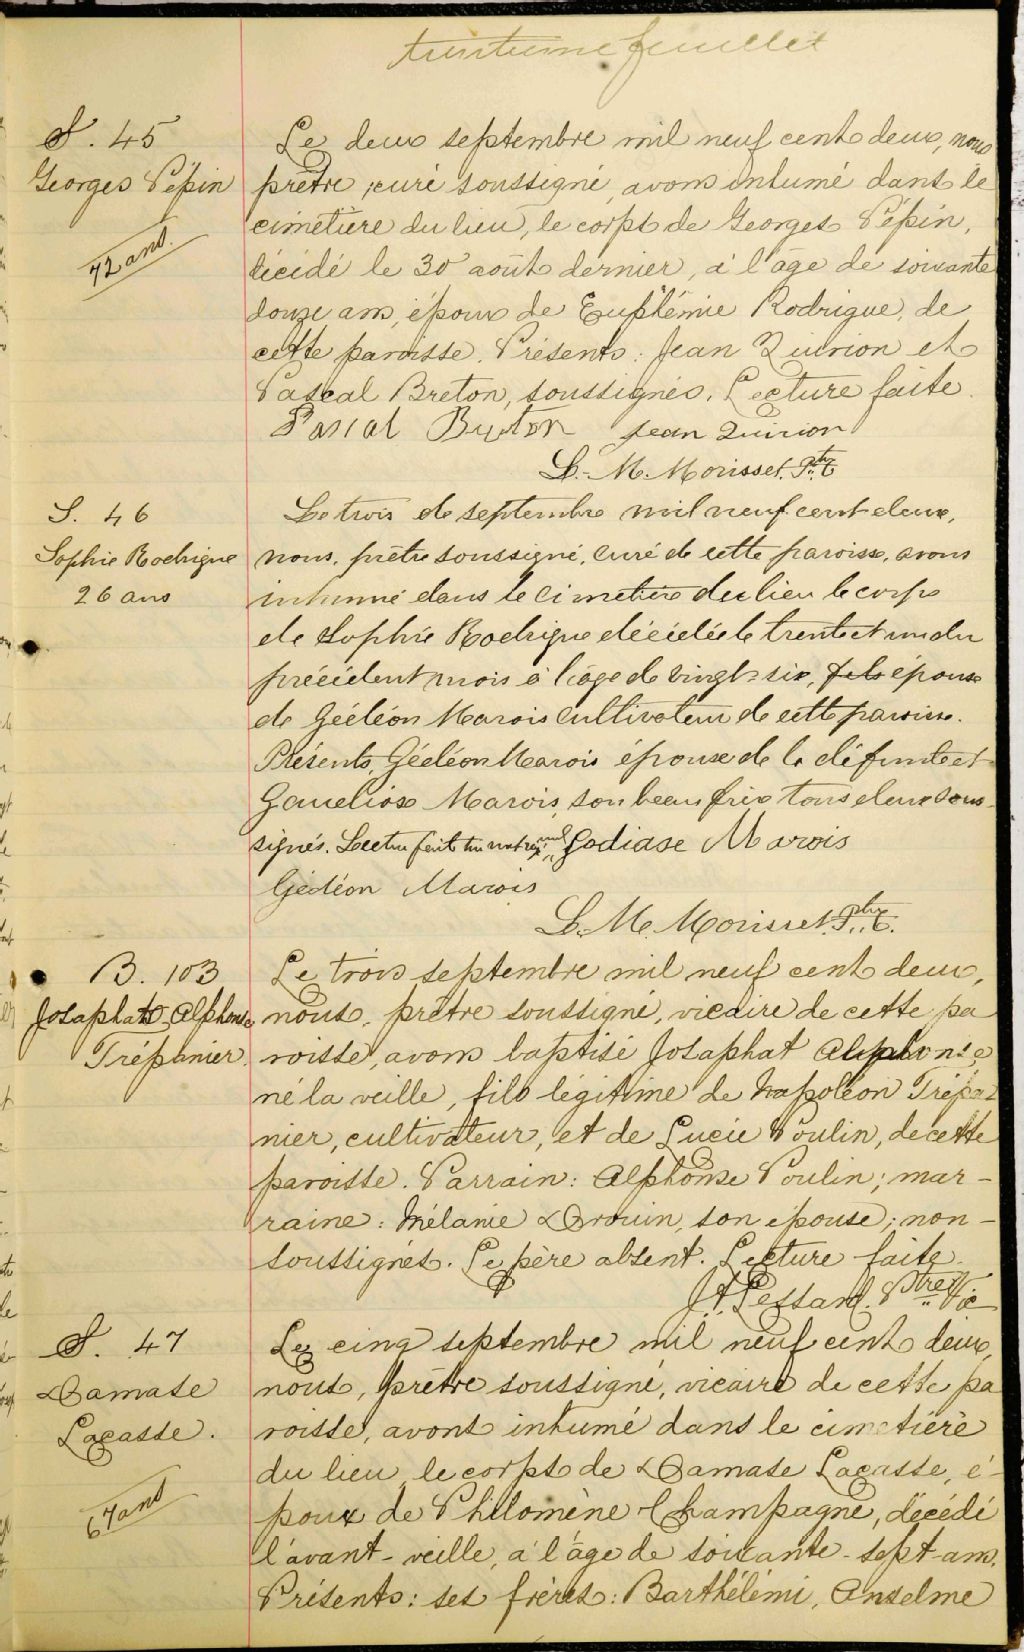 trentième feuillet
S. 45
Georges Pépin
72 ans.
Le deux septembre mil neuf cent deux, nous
prêtre, curé soussigné, avons inhumé dans le
cimetière du lieu, le corps de Georges Pépin,
décédé le 30 août dernier, à l'âge de soixante
douze ans, époux de Euphémie Rodrigue, de
cette paroisse. Présents: Jean Quirion et
Pascal Breton, soussignés. Lecture faite.
Pascal Breton Jean Quirion
L. M. Morisset. Ptre
S. 46
Sophie Rodrigue
26 ans
Le trois de septembre mil neuf cent deux,
nous, prêtre soussigné, curé de cette paroisse, avons
inhumé dans le cimetière du lieu le corps
de Sophie Rodrigue décédée le trente et un du
précédent mois à l'âge de vingt-six, fils épouse
de Gédéon Marois cultivateur de cette paroisse.
Présents, Gédéon Marois épouse de la défunte et
Marois, son beau frère tous deux sous-
signés. Lecture faite un mot rayé nul Godiase Marois
Gédéon Marois
L. M. Morisset. Ptre
B. 103
Josaphat Alphonse
Trépanier.
Le trois septembre mil neuf cent deux,
nous, prêtre soussigné, vicaire de cette pa
roisse, avons baptisé Josaphat Alphonse
né la veille, fils légitime de Napoléon Trépa
nier, cultivateur, et de Lucie Poulin, de cette
paroisse. Parrain: Alphonse Poulin; mar-
raine: Mélanie Drouin, son épouse; non-
soussignés. Le père absent. Lecture faite.
J. A. Lessard. Ptre Vic
S. 47
Damase
Lacasse.
67 ans
Le cinq septembre mil neuf cent deux,
nous, prêtre soussigné, vicaire de cette pa
roisse, avons inhumé dans le cimetière
du lieu, le corps de Damase Lacasse, é-
poux de Philomène Champagne, décédé
l'avant-veille, à l'âge de soixante-sept ans.
Présents: ses frères: Barthélémi, Anselme